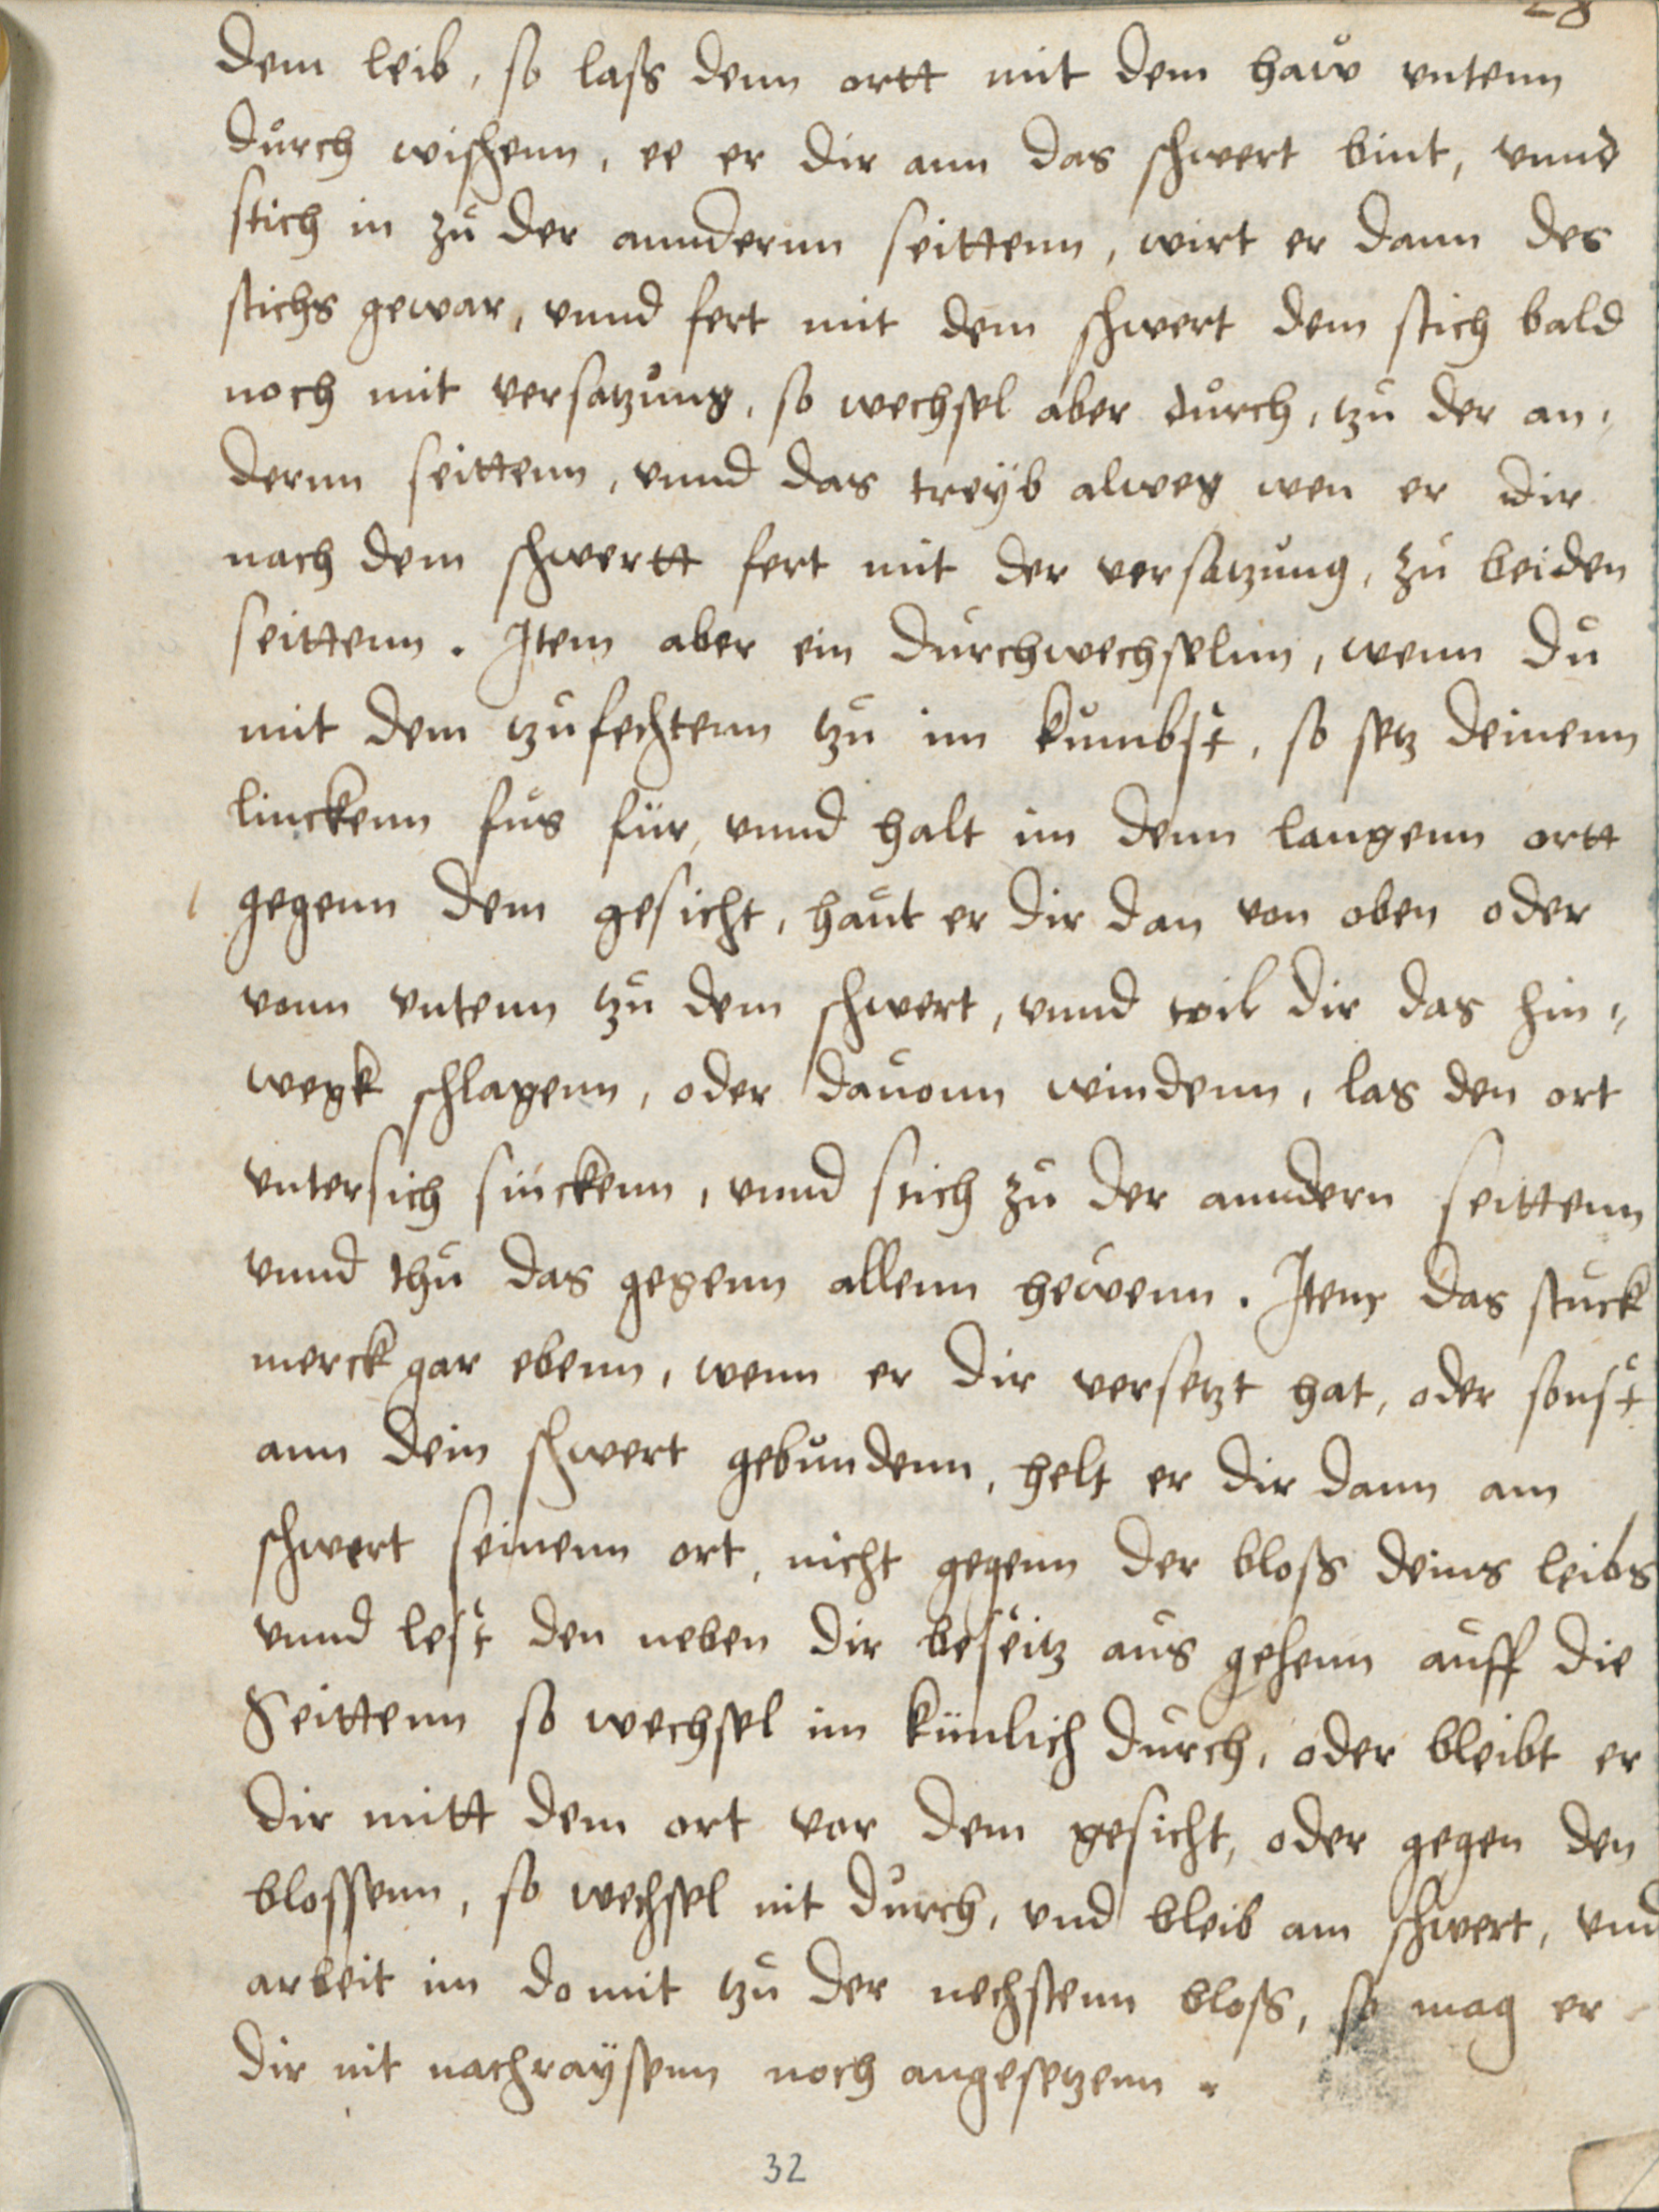 28
dem leib, so lass denn ortt mit dem haw vntenn
durch wischenn, ee er dir ann das schwert bint, vnnd
stich in zu der anndernn seittenn, wirt er dann des
stichs gewar, vnnd fert mit dem schwert dem stich bald
noch mit versatzung, so wechsel aber durch, tzu der an„
dernn seittenn, vnnd das treÿb alweg wen er dir
nach dem schwertt fert mit der versatzung, zu beiden
seittenn. Item aber ein durchwechselnn, wenn du
mit dem tzufechtenn tzu im kumbst, so setz deinenn
linckenn fus für, vnnd halt im denn langenn ortt
gegenn dem gesicht, haut er dir dan von oben oder
vonn vntenn tzu dem schwert, vnnd wil dir das hin„
wegk schlagenn, oder dauonn windenn, las den ort
vntersich sinckenn, vnnd stich zu der anndern seittenn
vnnd thu das gegenn allenn hewenn. Item das stuck
merck gar ebenn, wenn er dir versetzt hat, oder sonst
ann dein schwert gebundenn, helt er dir dann am
schwert seinenn ort, nicht gegenn der bloss deins leibs
vnnd lest den neben dir beseitz aus gehenn auff die
Seittenn so wechsel im künlich durch, oder bleibt er
dir mitt dem ort vor dem gesicht, oder gegen den
blossenn, so wechsel nit durch, vnd bleib am schwert, vnd
arbeit im domit tzu der nechstenn bloss, so mag er
dir nit nachraÿsenn noch angesetzenn.
32